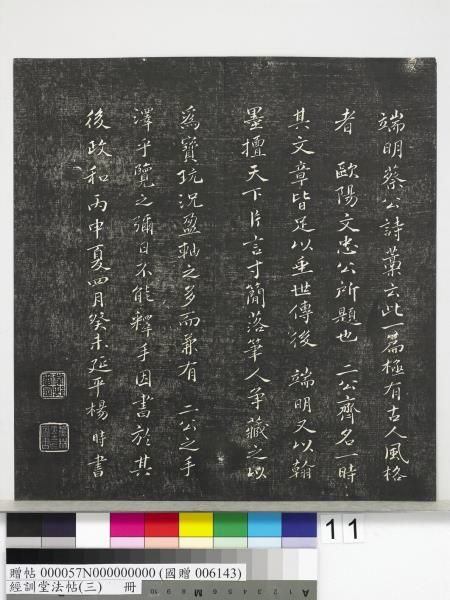 端明蔡公詩藁云此一篇極有古人風格
者 歐陽文忠公所題也 二公齊名一時
其文章皆足以垂世傳後 端明又以翰
墨擅天下片言寸簡落筆人爭藏之以
為寶玩況盈軸之多而兼有 二公之手
澤乎覽之彌日不能釋手因書於其
後政和丙申夏四月癸未延平楊時書
11
贈帖 000057N000000000 (國贈 006143)
經訓堂法帖(三) 冊